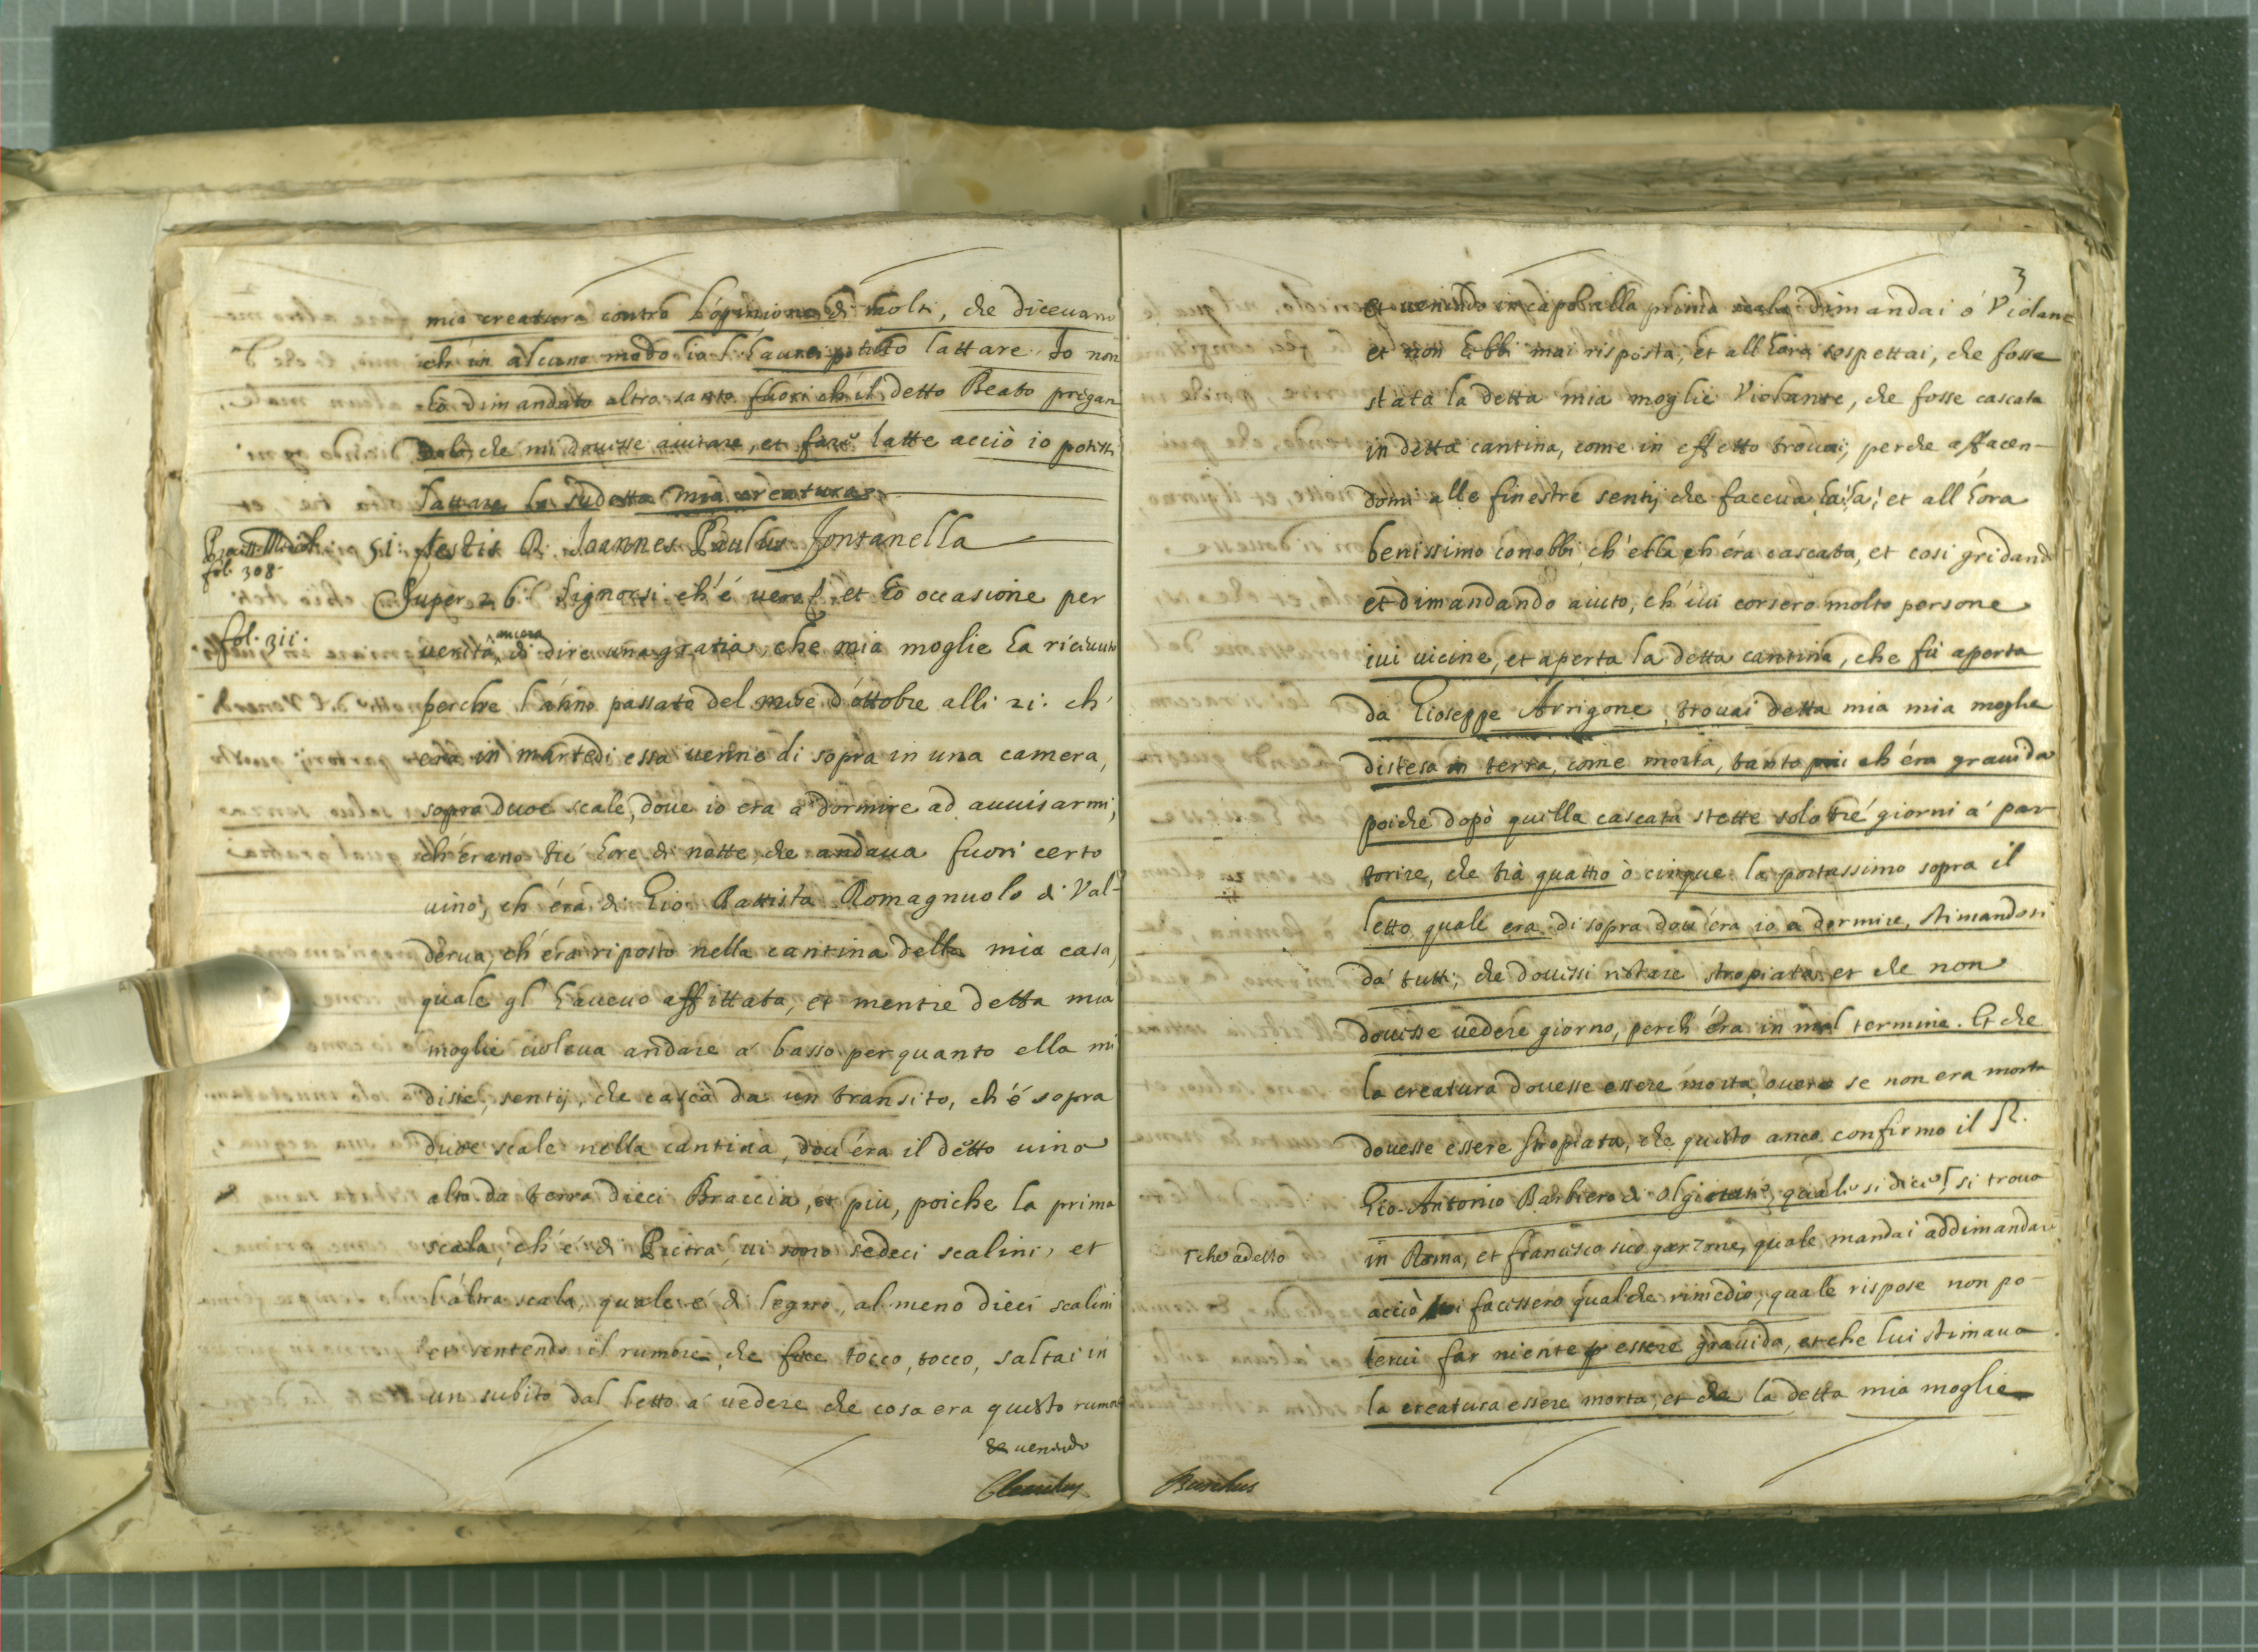 mia creatura contro l'opinione di molti, che diceuano
ch'in alcuno modo io l'hauerei potuto lattare. Io non
hò dimandato altro santo fuori ch'il detto Beato pregan
dolo, che mi douesse aiutare, et fare latte acciò io potessi
lattare la sudetta mia creatura.
Process. Mediol.
fol. 308.
51: testis D. Joannes Paulus Fontanella
Super 26. Signorsi ch'é uero et hò occasione per
fol. 311.
ancora
uerità di dire una gratia, che mia moglie ha riceuuto
perche l'anno passato del mese d'ottobre alli 21. ch'
era in martedi essa uenne di sopra in una camera,
sopra duoe scale, doue io era a dormire ad auuisarmi,
ch'érano tré hore di notte, che andaua fuori certo
uino, ch'éra di Gio: Battista Romagnuolo di Val-
derua, ch'éra riposto nella cantina della mia casa,
quale gl'haueuo affittata, et mentre detta mia
moglie uoleua andare a' basso per quanto ella mi
disse, sentij, che cascà da un transito, ch'é sopra
duoe scale nella cantina, dou'éra il detto uino
alto da terra dieci Braccia, et piu, poiche la prima
scala, ch'é di Pietra, ui sono sedeci scalini, et
l'altra scala, quale é di legno, al meno dieci scalini
et sentendo il rumore, che fece tocco, tocco, saltai in
un subito dal letto a' uedere che cosa era questo rumor
et uenendo
3
et uenendo in capo alla prima scala dimandai ó Violane
et non hebbi mai risposta, et all'hora sospettai, che fosse
stata la detta mia moglie Violante, che fosse cascata
in detta cantina, come in effetto trouai, perche affacen-
domi alle finestre sentij che faceua ha! ha! et all'hora
benissimo conobbi ch'ella ch'éra cascata, et cosi gridand
et dimandando aiuto, ch'iui corsero molto persone
iui uicine, et aperta la detta cantina, che fù aperta
da Gioseppe Arrigone, trouai detta mia mia moglie
distesa in terra, come morta, tanto piu ch'éra grauida
poiche dopò quella cascata stette solo tré giorni a' par
torire, che trà quattro ò cinque la portassimo sopra il
letto, quale era di sopra dou'éra io a dormire, stimandosi
da' tutti, che douessi restare stropiata et che non
douesse uedere giorno, perch'éra in mal termine. Et che
la creatura douesse essere morta, ouero se non era morta
douesse essere stropiata, che questo anco confirmo il S.
Gio. Antonio Barbiero di Olgiate, quale si dice si troua
che adesso
in Roma, et Francesco suo garzone, quale mandai addimandare
acciò lui facessero qualche rimedio, quale rispose non po-
terui far niente per essere grauida, et che lui stimaua
la creatura essere morta, et che la detta mia moglie